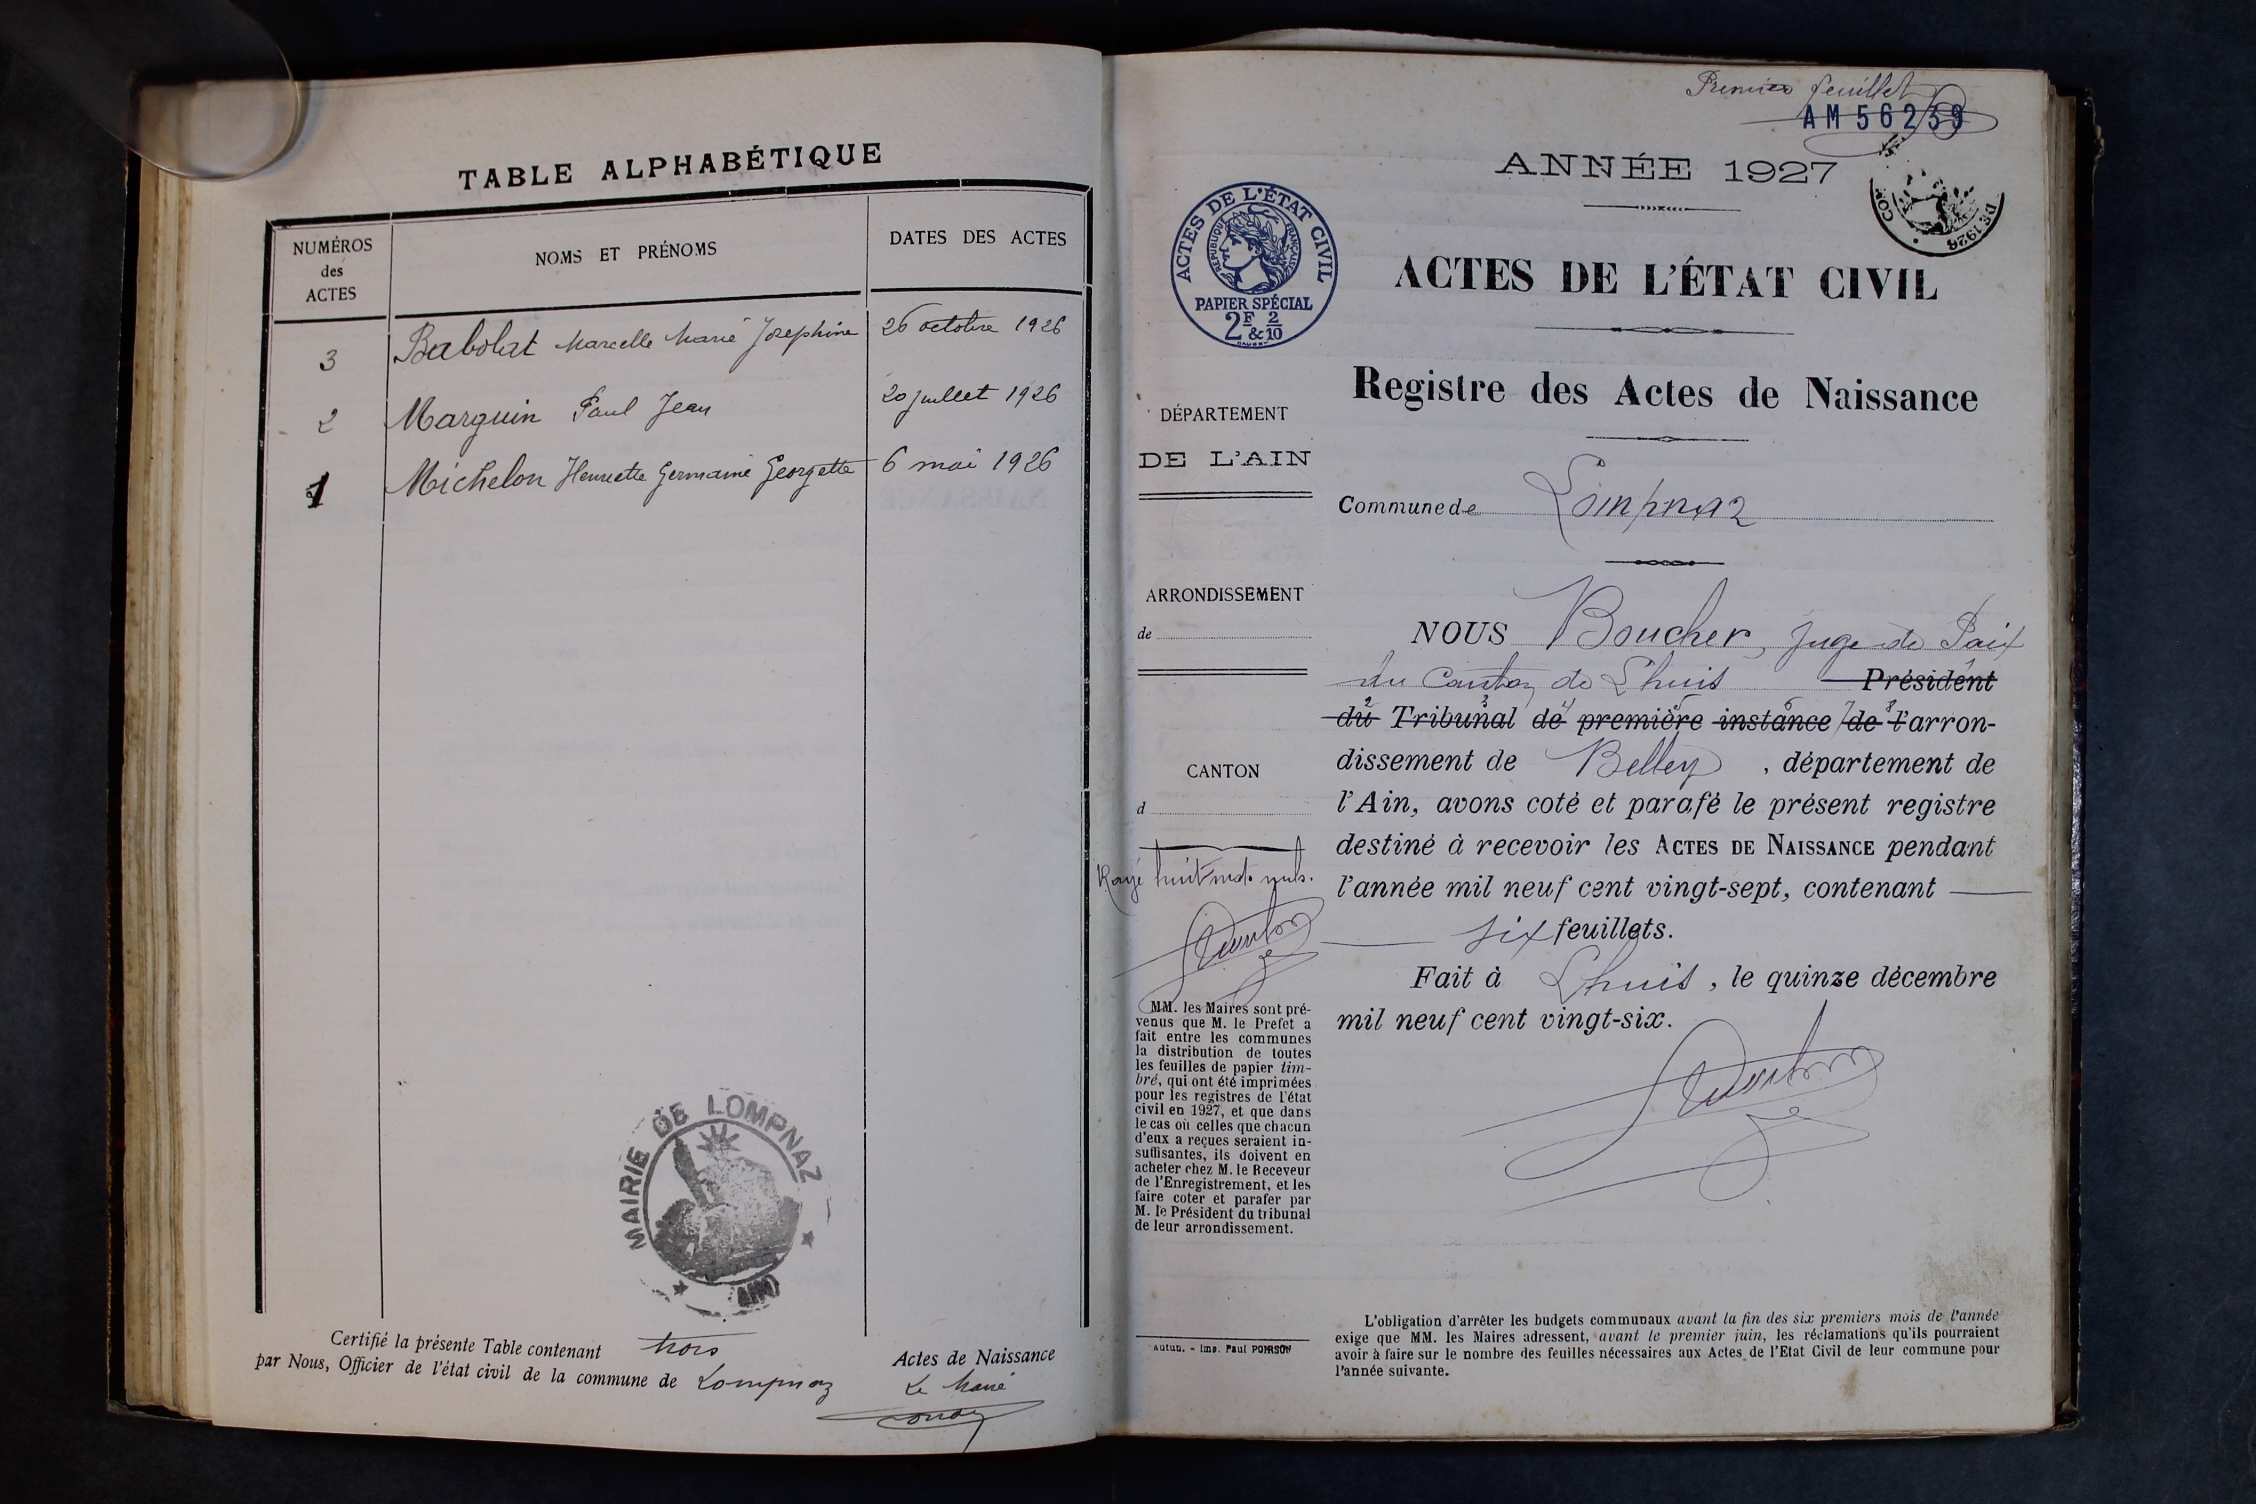 TABLE ALPHABÉTIQUE
NUMÉROS des ACTES
NOMS ET PRÉNOMS
DATES DES ACTES
3 Babolat Marcelle Marie Josephine 26 octobre 1926
2 Marguin Paul Jean 20 juillet 1926
1 Michelon Henriette Germaine Georgette 6 mai 1926
MAIRIE DE LOMPNAZ
(AIN)
Certifié la présente Table contenant trois Actes de Naissance
par Nous, Officier de l'état civil de la commune de Lompnaz Le Maire
Premier feuillet
AM 56239
ANNÉE 1927
DE 1926
ACTES DE L'ÉTAT CIVIL
RÉPUBLIQUE FRANÇAISE
PAPIER SPÉCIAL
2F & 2/10
ACTES DE L'ÉTAT CIVIL
Registre des Actes de Naissance
DÉPARTEMENT
DE L'AIN
Commune de Lompnaz
ARRONDISSEMENT
de
CANTON
d
Rayé huit mots nuls.
NOUS Boucher, Juge de Paix
du Canton de Lhuis Président
du Tribunal de première instance de l'arron-
dissement de Belley, département de
l'Ain, avons coté et parafé le présent registre
destiné à recevoir les ACTES DE NAISSANCE pendant
l'année mil neuf cent vingt-sept, contenant
six feuillets.
Fait à Lhuis, le quinze décembre
mil neuf cent vingt-six.
MM. les Maires sont pré-
venus que M. le Prefet a
fait entre les communes
la distribution de toutes
les feuilles de papier tim-
bré, qui ont été imprimées
pour les registres de l'état
civil en 1927, et que dans
le cas où celles que chacun
d'eux a reçues seraient in-
suffisantes, ils doivent en
acheter chez M. le Receveur
de l'Enregistrement, et les
faire coter et parafer par
M. le Président du tribunal
de leur arrondissement.
Autun. - Imp. Paul POIRSON
L'obligation d'arrêter les budgets communaux avant la fin des six premiers mois de l'année
exige que MM. les Maires adressent, avant le premier juin, les réclamations qu'ils pourraient
avoir à faire sur le nombre des feuilles nécessaires aux Actes de l'Etat Civil de leur commune pour
l'année suivante.